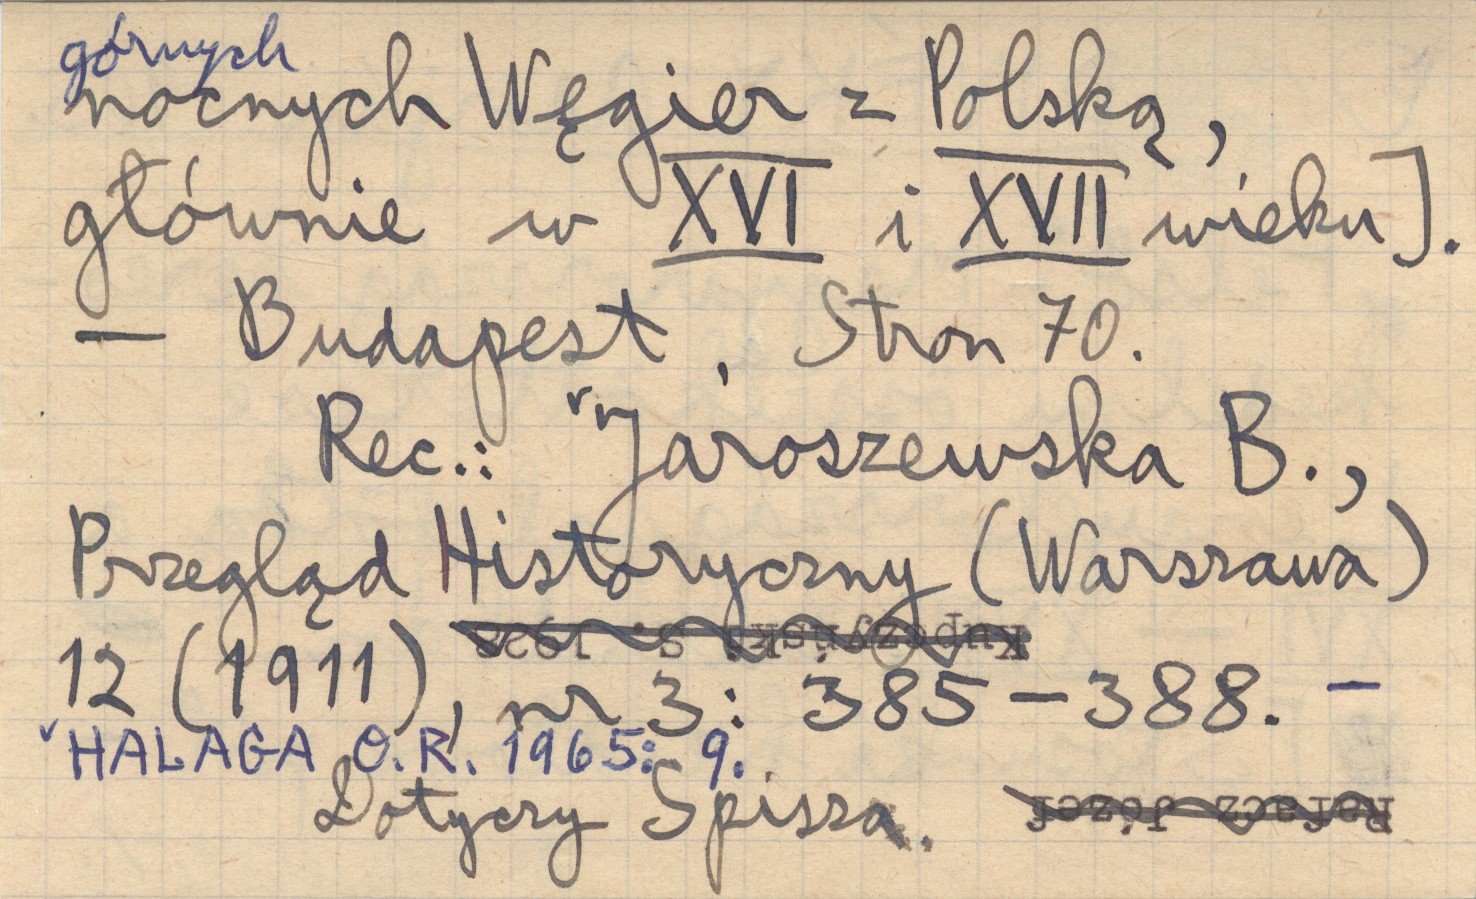 górnych
nocnych Węgier z Polską,
głównie w XVI i XVII wieku].
— Budapest, Stron 70.
Rec.: Jaroszewska B.,
Przegląd Historyczny (Warszawa)
Kupczyński S. 1928
12 (1911), nr 3: 385–388. –
HALAGA O.R. 1965: 9.
Dotyczy Spisza.
Rafacz Józef